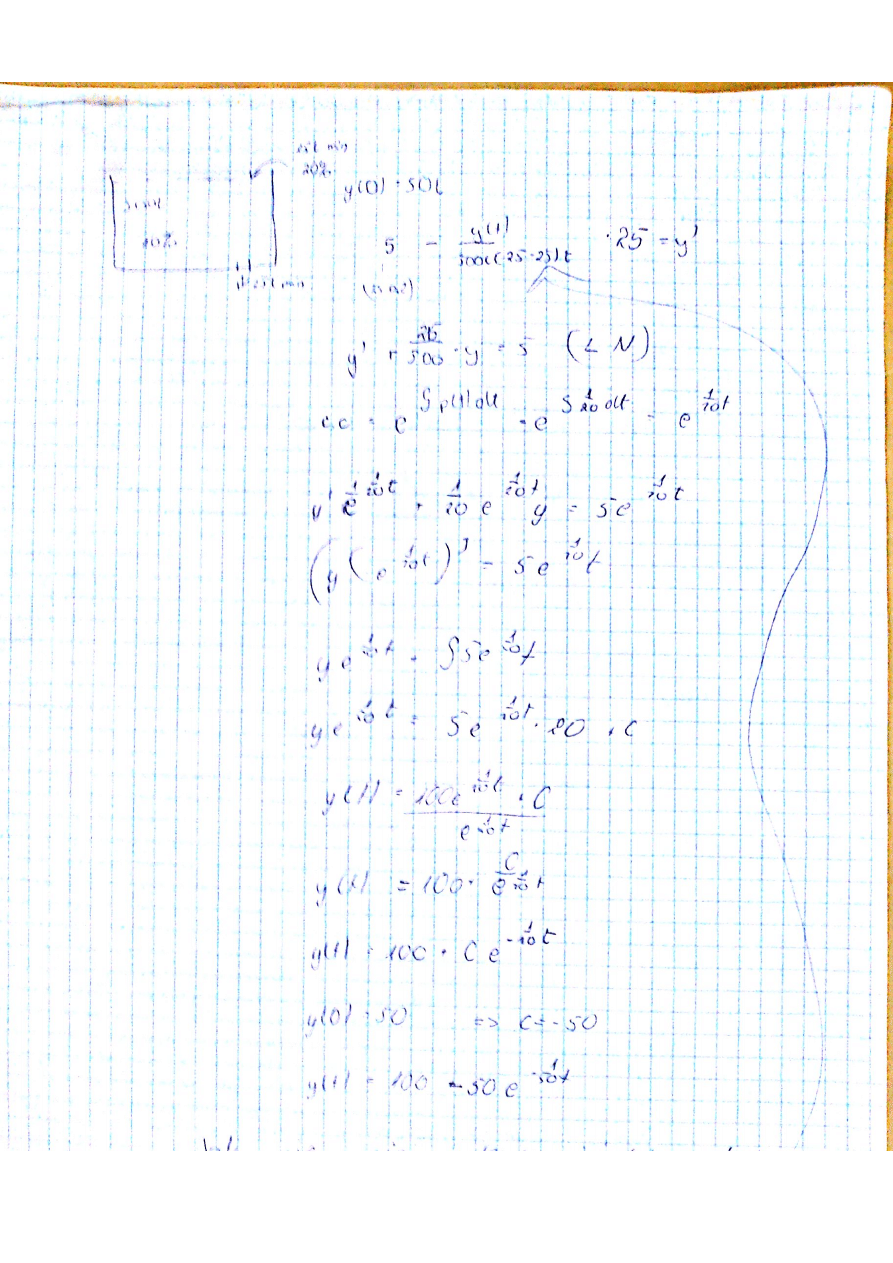 25l min
20%
y(0) = 50l
500l
10%
5 - y(t)/500+(25-25)t · 25 = y'
25l min
y' + 25/500 · y = 5 (L N)
= e^∫p(t)dt = e^∫1/20 dt = e^1/20t
y' e^1/20t + 1/20 e^1/20t y = 5e^1/20t
(y(e^1/20t)' = 5e^1/20t
ye^1/20t = ∫5e^1/20t
ye^1/20t = 5e^1/20t · 20 + C
y(t) = 100e^1/20t + C / e^1/20t
y(t) = 100 + C/e^1/20t
y(t) = 100 + C e^-1/20t
y(0) = 50 => C = -50
y(t) = 100 - 50e^-1/20t